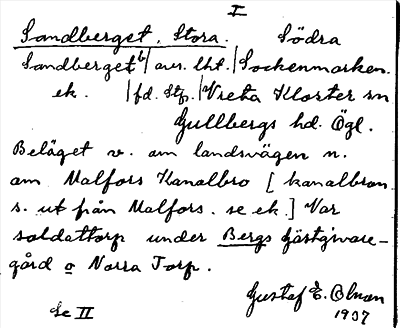 I
Sandberget, Stora. Södra
Sandberget b/ avs. lht. / Sockenmarken.
ek. /fd. Stp. /Vreta Kloster sn
Gullbergs hd. Ögl.
Beläget v. om landsvägen n.
om Malfors Kanalbro [kanalbron
s. ut från Malfors. se ek.] Var
soldattorp under Bergs Gästgivare-
gård o Norra Torp.
Gustaf E. Olman
Se II 1937